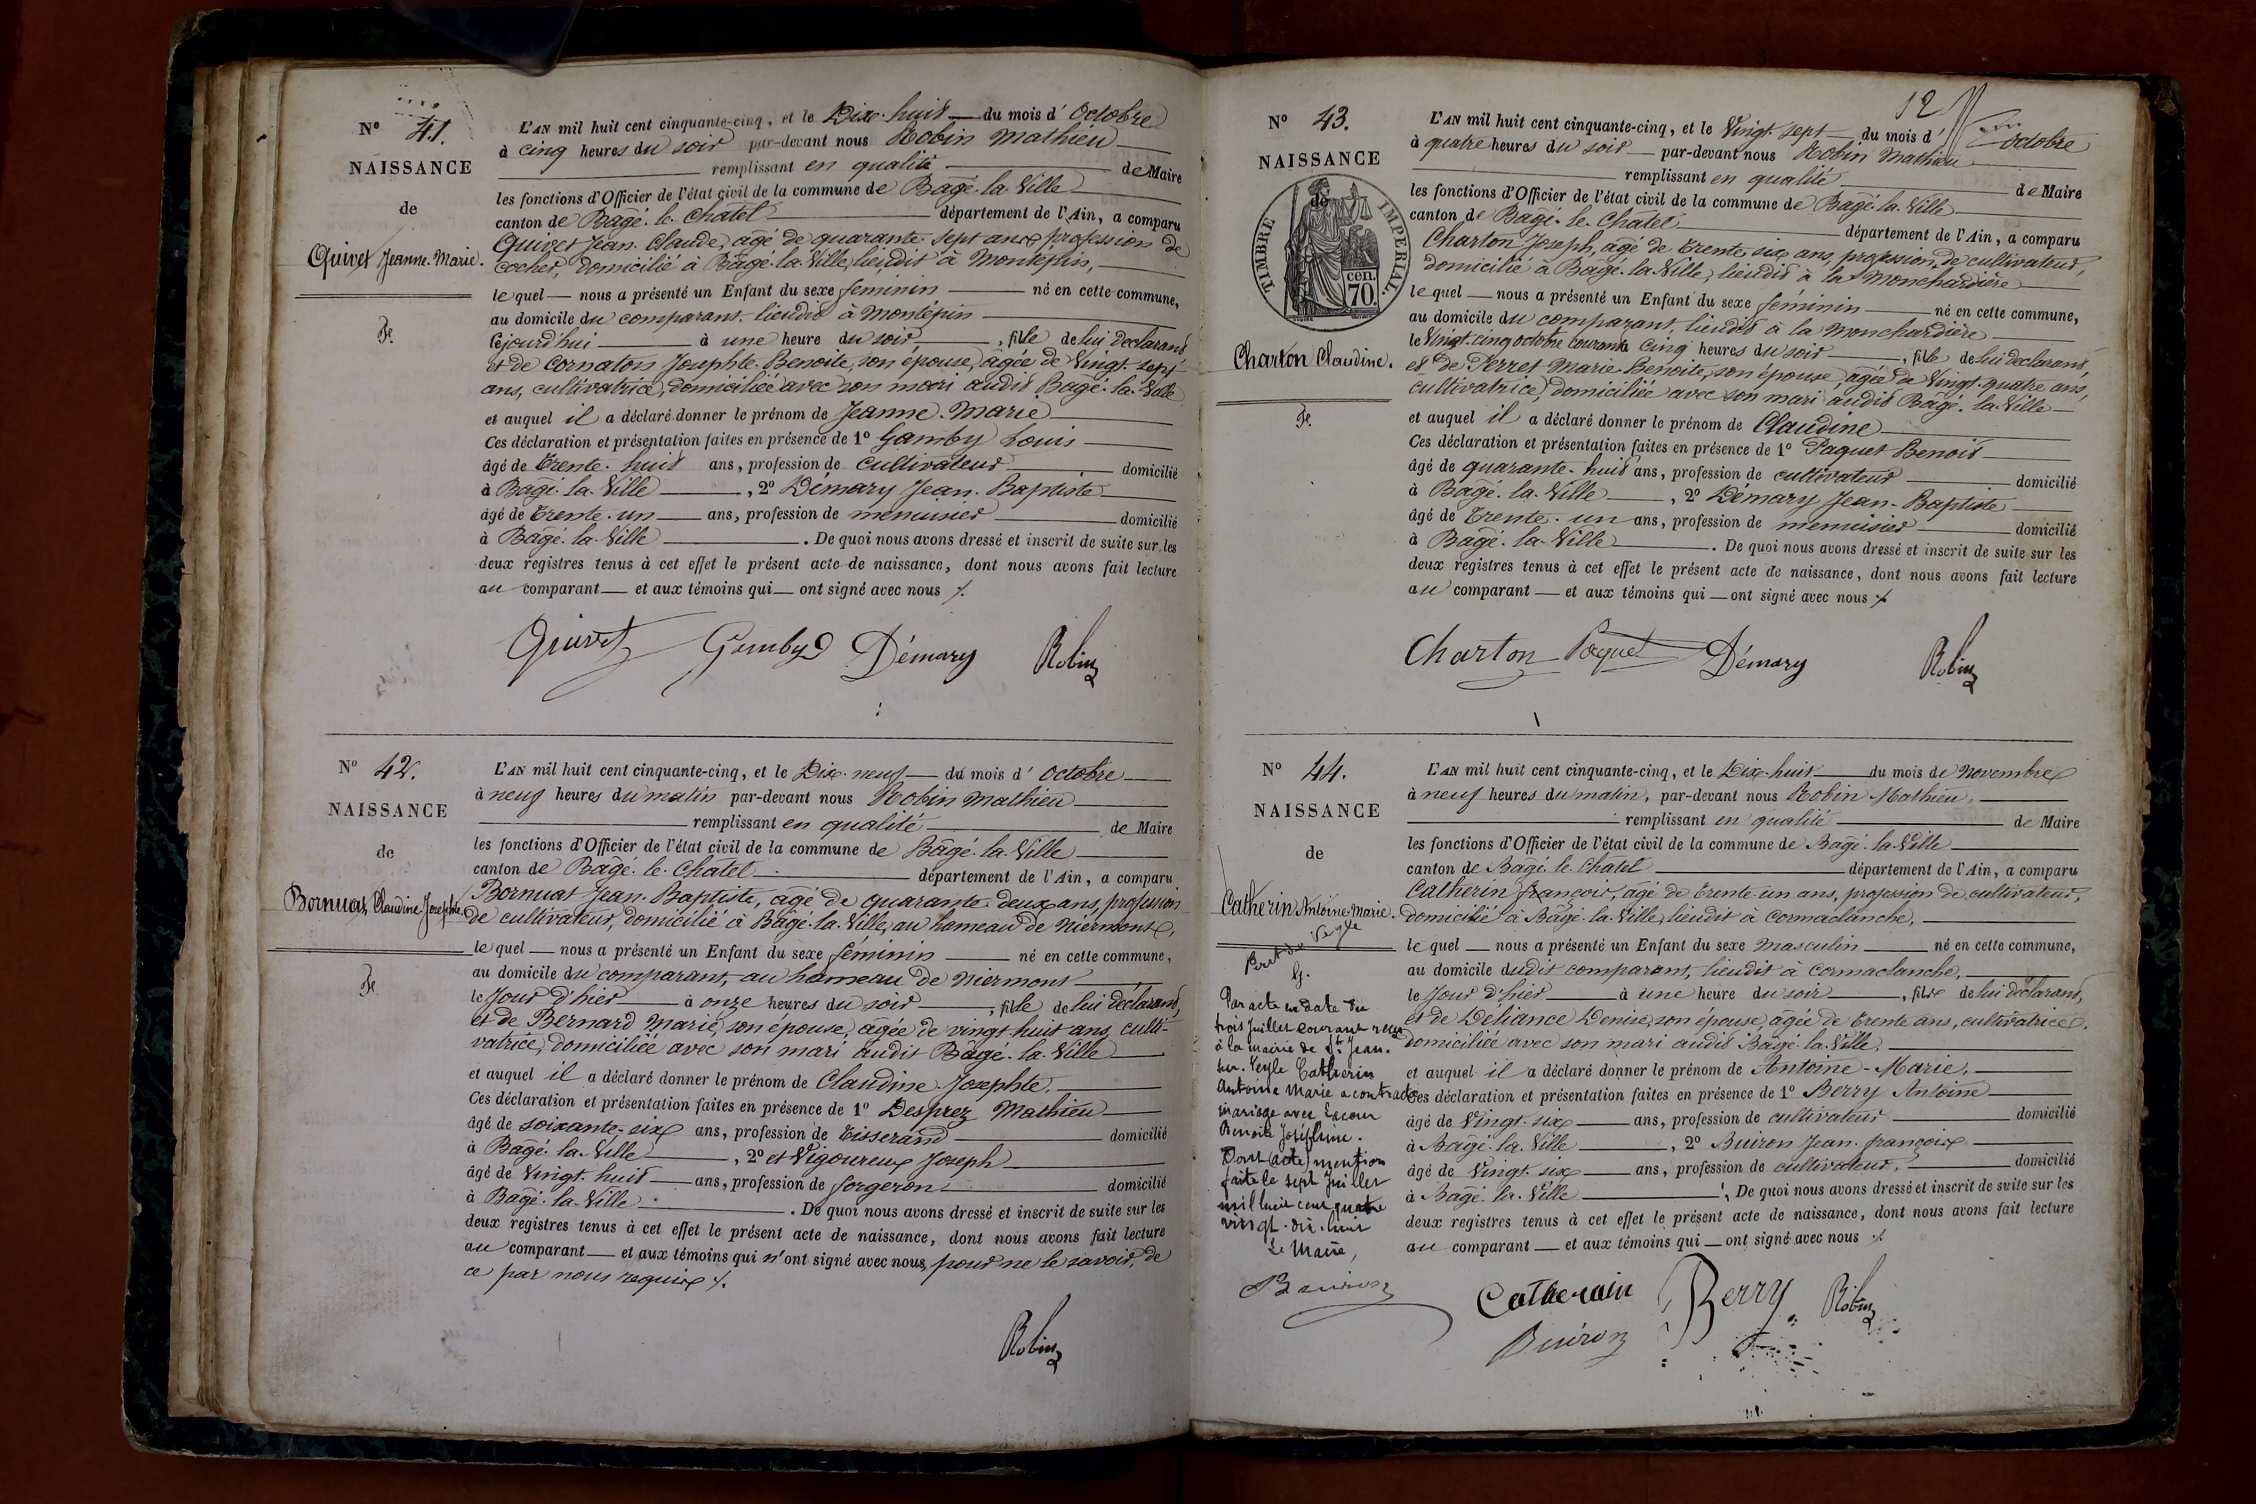 Nº 41.
NAISSANCE
de
Quivet Jeanne-Marie.
Fe.
L'AN mil huit cent cinquante-cinq, et le Dix-huit du mois d'Octobre
à cinq heures du soir par-devant nous Robin Mathieu
remplissant en qualité de Maire
les fonctions d'Officier de l'état civil de la commune de Bâgé-la-Ville
canton de Bâgé-le-Chatel département de l'Ain, a comparu
Quivet Jean-Claude, âgé de quarante-sept ans, profession de
cocher, domicilié à Bâgé-la-Ville, lieudit à Montépin,
lequel nous a présenté un Enfant du sexe féminin né en cette commune,
au domicile du comparant, lieudit à Montépin
cejourd'hui à une heure du soir, fille de lui déclarant
et de Cornaton Josephte-Benoite, son épouse, âgée de Vingt-sept
ans, cultivatrice, domiciliée avec son mari audit Bâgé-la-Ville
et auquel il a déclaré donner le prénom de Jeanne-Marie
Ces déclaration et présentation faites en présence de 1º Gamby Louis
âgé de Trente-huit ans, profession de cultivateur domicilié
à Bâgé-la-Ville, 2º Démary Jean-Baptiste
âgé de Trente-un ans, profession de menuisier domicilié
à Bâgé-la-Ville. De quoi nous avons dressé et inscrit de suite sur les
deux registres tenus à cet effet le présent acte de naissance, dont nous avons fait lecture
au comparant et aux témoins qui ont signé avec nous
Quivet Gamby Démary Robin
Nº 42.
NAISSANCE
de
Bornuat Claudine Josephte
Fe
L'AN mil huit cent cinquante-cinq, et le Dix-neuf du mois d'octobre
à neuf heures du matin par-devant nous Robin Mathieu
remplissant en qualité de Maire
les fonctions d'Officier de l'état civil de la commune de Bâgé-la-Ville
canton de Bâgé-le-Chatel département de l'Ain, a comparu
Bornuat Jean-Baptiste, âgé de quarante-deux ans, profession
de cultivateur, domicilié à Bâgé-la-Ville, au hameau de Niermont,
lequel nous a présenté un Enfant du sexe féminin né en cette commune,
au domicile du comparant, au hameau de Niermont
le Jour d'hier à onze heures du soir, fille de lui déclarant,
et de Bernard Marie, son épouse, âgée de vingt-huit ans, culti-
vatrice, domiciliée avec son mari audit Bâgé-la-Ville
et auquel il a déclaré donner le prénom de Claudine-Josephte.
Ces déclaration et présentation faites en présence de 1º Desprez Mathieu
âgé de soixante-six ans, profession de Tisserand domicilié
à Bâgé-la-Ville, 2º et Vigoureux Joseph
âgé de Vingt-huit ans, profession de forgeron domicilié
à Bâgé-la-Ville. De quoi nous avons dressé et inscrit de suite sur les
deux registres tenus à cet effet le présent acte de naissance, dont nous avons fait lecture
au comparant et aux témoins qui n'ont signé avec nous, pour ne le savoir, de
ce par nous requis
Robin
12
Nº 43.
NAISSANCE
de
TIMBRE IMPERIAL
70 cen.
Charton Claudine.
Fe.
L'AN mil huit cent cinquante-cinq, et le Vingt-sept du mois d'octobre
à quatre heures du soir par-devant nous Robin Mathieu
remplissant en qualité de Maire
les fonctions d'Officier de l'état civil de la commune de Bâgé-la-Ville
canton de Bâgé-le-Chatel département de l'Ain, a comparu
Charton Joseph, âgé de trente-six ans, profession de cultivateur,
domicilié à Bâgé-la-Ville, lieudit à la Monchardière
lequel nous a présenté un Enfant du sexe féminin né en cette commune,
au domicile du comparant, lieudit à la Monchardière
le Vingt-cinq octobre courant à cinq heures du soir, fille de lui déclarant,
et de Perret Marie-Benoite, son épouse, âgée de Vingt-quatre ans,
cultivatrice, domiciliée avec son mari audit Bâgé-la-Ville
et auquel il a déclaré donner le prénom de Claudine
Ces déclaration et présentation faites en présence de 1º Paquet Benoit
âgé de quarante-huit ans, profession de cultivateur domicilié
à Bâgé-la-Ville, 2º Démary Jean-Baptiste
âgé de Trente-un ans, profession de menuisier domicilié
à Bâgé-la-Ville. De quoi nous avons dressé et inscrit de suite sur les
deux registres tenus à cet effet le présent acte de naissance, dont nous avons fait lecture
au comparant et aux témoins qui ont signé avec nous
Charton Paquet Démary Robin
Nº 44.
NAISSANCE
de
Catherin Antoine-Marie.
Par acte en date du
trois Juillet courant reçu
à la mairie de St Jean-
sur-Veyle Catherin
Antoine Marie a contracté
mariage avec Lacour
Benoite Joséphine.
Dont (acte) mention
faite le sept Juillet
mil huit cent quatre
vingt-dix-huit
Le Maire,
Buiron
L'AN mil huit cent cinquante-cinq, et le Dix-huit du mois de novembre
à neuf heures du matin, par-devant nous Robin Mathieu,
remplissant en qualité de Maire
les fonctions d'Officier de l'état civil de la commune de Bâgé-la-Ville
canton de Bâgé-le-Chatel département de l'Ain, a comparu
Catherin françois, âgé de trente-un ans, profession de cultivateur,
domicilié à Bâgé-la-Ville, lieudit à Cormaclanche,
lequel nous a présenté un Enfant du sexe masculin né en cette commune,
au domicile dudit comparant, lieudit à Cormaclanche,
le Jour d'hier à une heure du soir, fils de lui déclarant,
et de Déliance Denise, son épouse, âgée de trente ans, cultivatrice,
domiciliée avec son mari audit Bâgé-la-Ville.
et auquel il a déclaré donner le prénom de Antoine-Marie.
Ces déclaration et présentation faites en présence de 1º Berry Antoine
âgé de Vingt-six ans, profession de cultivateur domicilié
à Bâgé-la-Ville, 2º Buiron Jean-françois
âgé de Vingt-six ans, profession de cultivateur, domicilié
à Bâgé-la-Ville. De quoi nous avons dressé et inscrit de suite sur les
deux registres tenus à cet effet le présent acte de naissance, dont nous avons fait lecture
au comparant et aux témoins qui ont signé avec nous
Catherain Berry Robin
Buiron